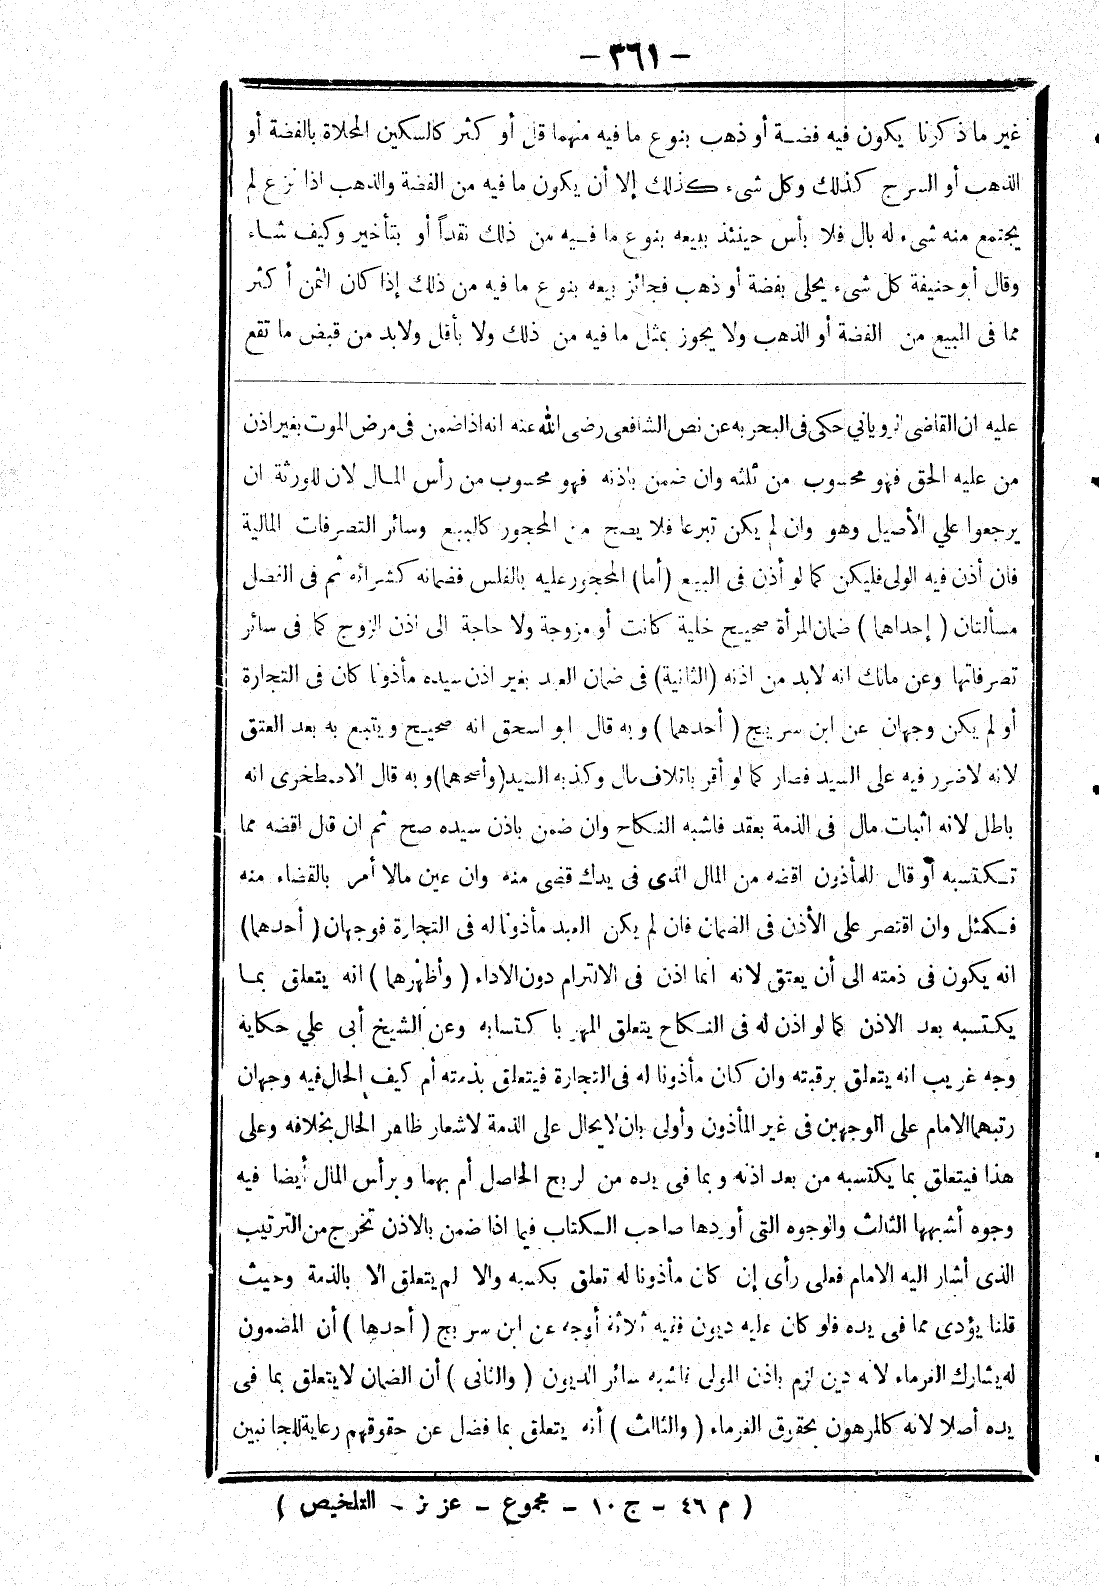 - ٣٦١ -
غير ما ذكرنا يكون فيه فضة أو ذهب بنوع ما فيه منهما قل أو كثر كالسكين المحلاة بالفضة أو
الذهب أو السرج كذلك وكل شىء كذلك إلا أن يكون ما فيه من الفضة والذهب اذا نزع لم
يجتمع منه شىء له بال فلا بأس حينئذ ببيعه بنوع ما فيه من ذلك نقداً أو بتأخير وكيف شاء
وقال أبو حنيفة كل شىء يحلى بفضة أو ذهب فجائز بيعه بنوع ما فيه من ذلك إذا كان الثمن أكثر
مما فى المبيع من الفضة أو الذهب ولا يجوز بمثل ما فيه من ذلك ولا بأقل ولابد من قبض ما تقع
عليه ان القاضى الروياني حكى فى البحر به عن نص الشافعى رضى الله عنه انه اذا ضمن فى مرض الموت بغير اذن
من عليه الحق فهو محسوب من ثلثه وان ضمن باذنه فهو محسوب من رأس المال لان للورثة ان
يرجعوا علي الأصيل وهو وان لم يكن تبرعا فلا يصح من المحجور كالبيع وسائر التصرفات المالية
فان أذن فيه الولى فليكن كما لو أذن فى البيع (أما) المحجور عليه بالفلس فضمانه كشرائه ثم فى الفصل
مسألتان ( إحداهما ) ضمان المرأة صحيح خلية كانت أو مزوجة ولا حاجة الى اذن الزوج كما فى سائر
تصرفاتها وعن مالك انه لابد من اذنه (الثانية) فى ضمان العبد بغير اذن سيده مأذونا كان فى التجارة
أو لم يكن وجهان عن ابن سريج ( أحدهما ) وبه قال ابو اسحق انه صحيح ويتبع به بعد العتق
لانه لاضرر فيه على السيد فصار كما لو أقر باتلاف مال وكذبه السيد (وأصحهما) وبه قال الاصطخرى انه
باطل لانه اثبات مال فى الذمة بعقد فاشبه النكاح وان ضمن باذن سيده صح ثم ان قال اقضه مما
تكتسبه أو قال للمأذون اقضه من المال الذى فى يدك قضى منه وان عين مالا أمر بالقضاء منه
فكمثل وان اقتصر على الأذن فى الضمان فان لم يكن العبد مأذونا له فى التجارة فوجهان ( أحدهما)
انه يكون فى ذمته الى أن يعتق لانه انما اذن فى الالتزام دون الاداء ( وأظهرهما ) انه يتعلق بما
يكتسبه بعد الاذن كما لو اذن له فى النكاح يتعلق المهر باكتسابه وعن الشيخ أبى علي حكاية
وجه غريب انه يتعلق برقبته وان كان مأذونا له فى التجارة فيتعلق بذمته أم كيف الحال فيه وجهان
رتبهما الامام على الوجهين فى غير المأذون وأولى بان لايحال على الذمة لاشعار ظاهر الحال بخلافه وعلى
هذا فيتعلق بما يكتسبه من بعد اذنه وبما فى يده من الربح الحاصل أم بهما وبرأس المال أيضا فيه
وجوه أشبهها الثالث والوجوه التى أوردها صاحب الكتاب فيما اذا ضمن بالاذن تخرج من الترتيب
الذى أشار اليه الامام فعلى رأى إن كان مأذونا له تعلق بكسبه والا لم يتعلق الا بالذمة وحيث
قلنا يؤدى مما فى يده فلو كان عليه ديون ففيه ثلاثة أوجه عن ابن سريج ( أحدها ) أن المضمون
له يشارك الغرماء لانه دين لزم باذن المولى فاشبه سائر الديون ( والثانى ) أن الضمان لايتعلق بما فى
يده أصلا لانه كالمرهون بحقوق الغرماء ( والثالث ) أنه يتعلق بما فضل عن حقوقهم رعاية للجانبين
( م ٤٦ - ج ١٠ - مجموع - عزيز - التلخيص )